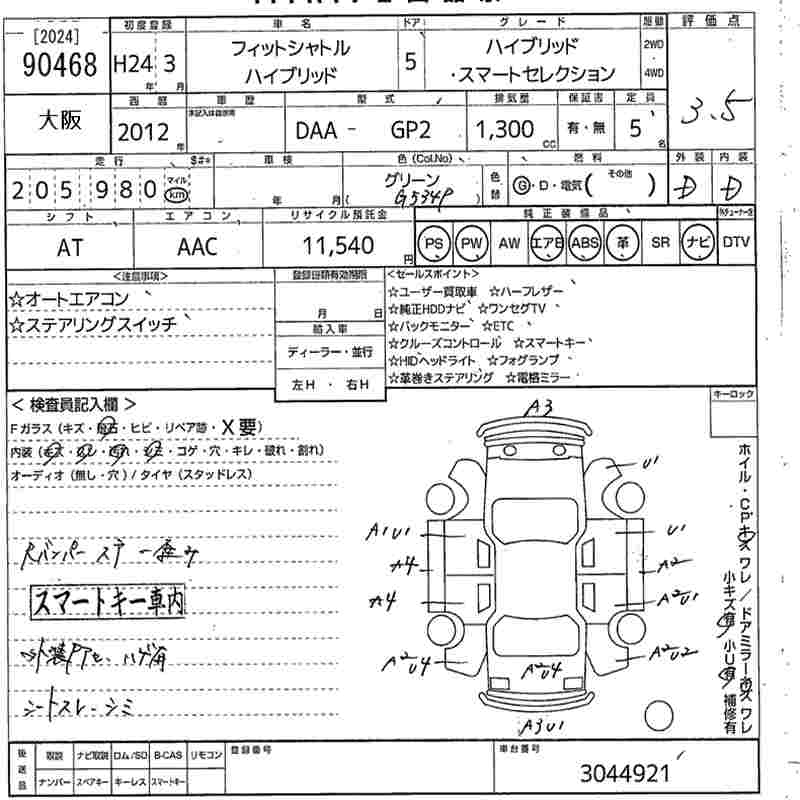 [2024]
90468
大阪
初度登録
H24 3
年 月
車名
フィットシャトル
ハイブリッド
ドア
5
グレード
ハイブリッド
・スマートセレクション
2WD
・
4WD
評価点
3.5
西暦
2012年
車歴
型式
DAA - GP2
排気量
1,300
CC
保証書
有・無
定員
5
名
走行
205980
マイル
km
車検
年 月
色 (Col.No)
グリーン
( G534P )
色替
燃料
G・D・電気( その他 )
外装
D
内装
D
シフト
AT
エアコン
AAC
リサイクル預託金
11,540
円
純正装備品
PS PW AW エアB ABS 革 SR ナビ DTV
<注意事項>
☆オートエアコン
☆ステアリングスイッチ
登録日類有効期限
月 日
輸入車
ディーラー・並行
左H・右H
<セールスポイント>
☆ユーザー買取車 ☆ハーフレザー
☆純正HDDナビ ☆ワンセグTV
☆バックモニター ☆ETC
☆クルーズコントロール ☆スマートキー
☆HIDヘッドライト ☆フォグランプ
☆革巻きステアリング ☆電格ミラー
キーロック
< 検査員記入欄 >
Fガラス (キズ・飛石・ヒビ・リペア跡・X要)
内装 (キズ・スレ・汚れ・シミ・コゲ・穴・キレ・破れ・割れ)
オーディオ (無し・穴) / タイヤ (スタッドレス)
スマートキー車内
シートスレ・シミ
A3
U1
A1U1
U1
A4
A2
A4
A2U1
A2U4
A2U4
A2U2
A3U1
ホイル・CPキズ ワレ / ドアミラーキズ ワレ
小キズ有 小U有 補修有
後送品
取説 ナビ取説 ロム/SD B-CAS リモコン
ナンバー スペアキー キーレス スマートキー
登録番号
車台番号
3044921